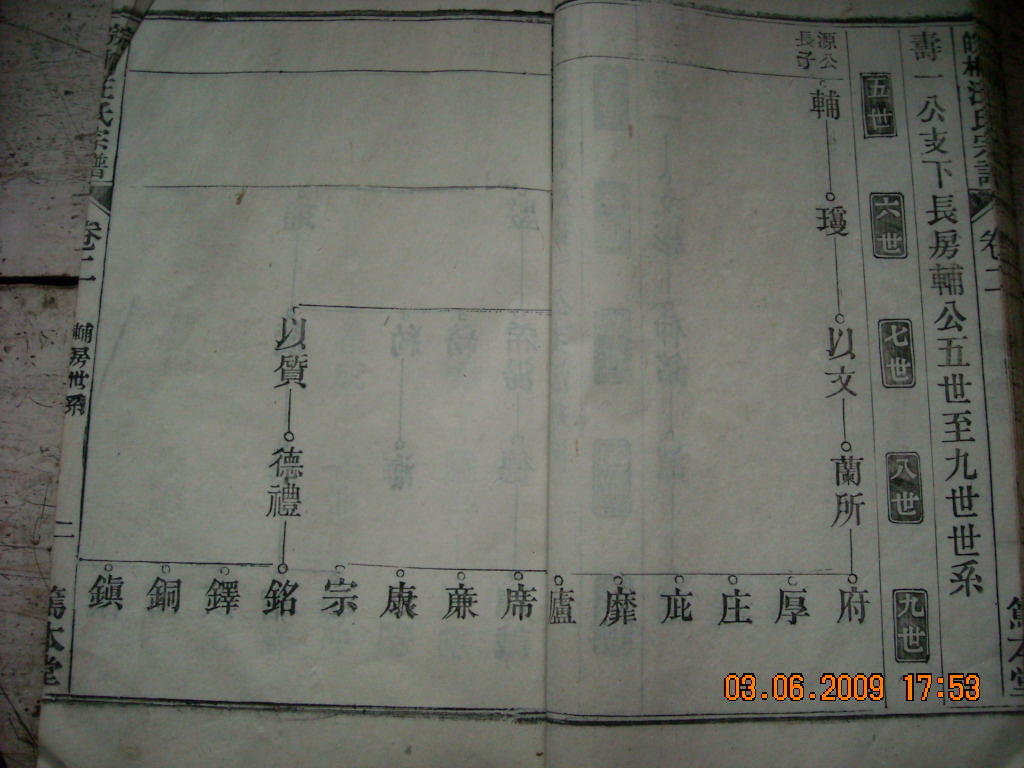 汪氏宗譜
卷二
篤本堂
壽一公支下長房輔公五世至九世世系
五世
六世
七世
八世
九世
源公
長子
輔
瓊
以文
蘭所
府
厚
庄
庇
靡
廬
席
廉
康
宗
以質
德禮
銘
鐸
銅
鎮
汪氏宗譜
卷二
輔房世系
二
篤本堂
03.06.2009 17:53